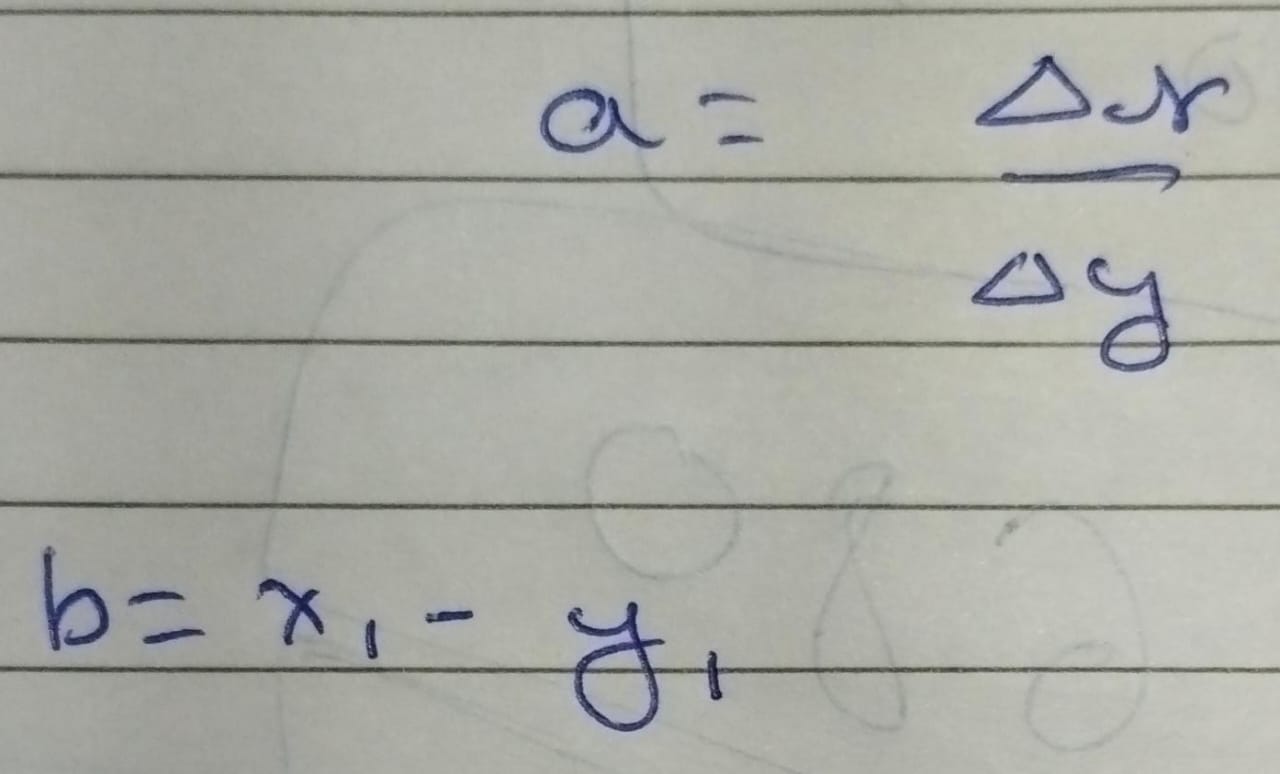 a = Δx / Δy
b = x₁ - y₁